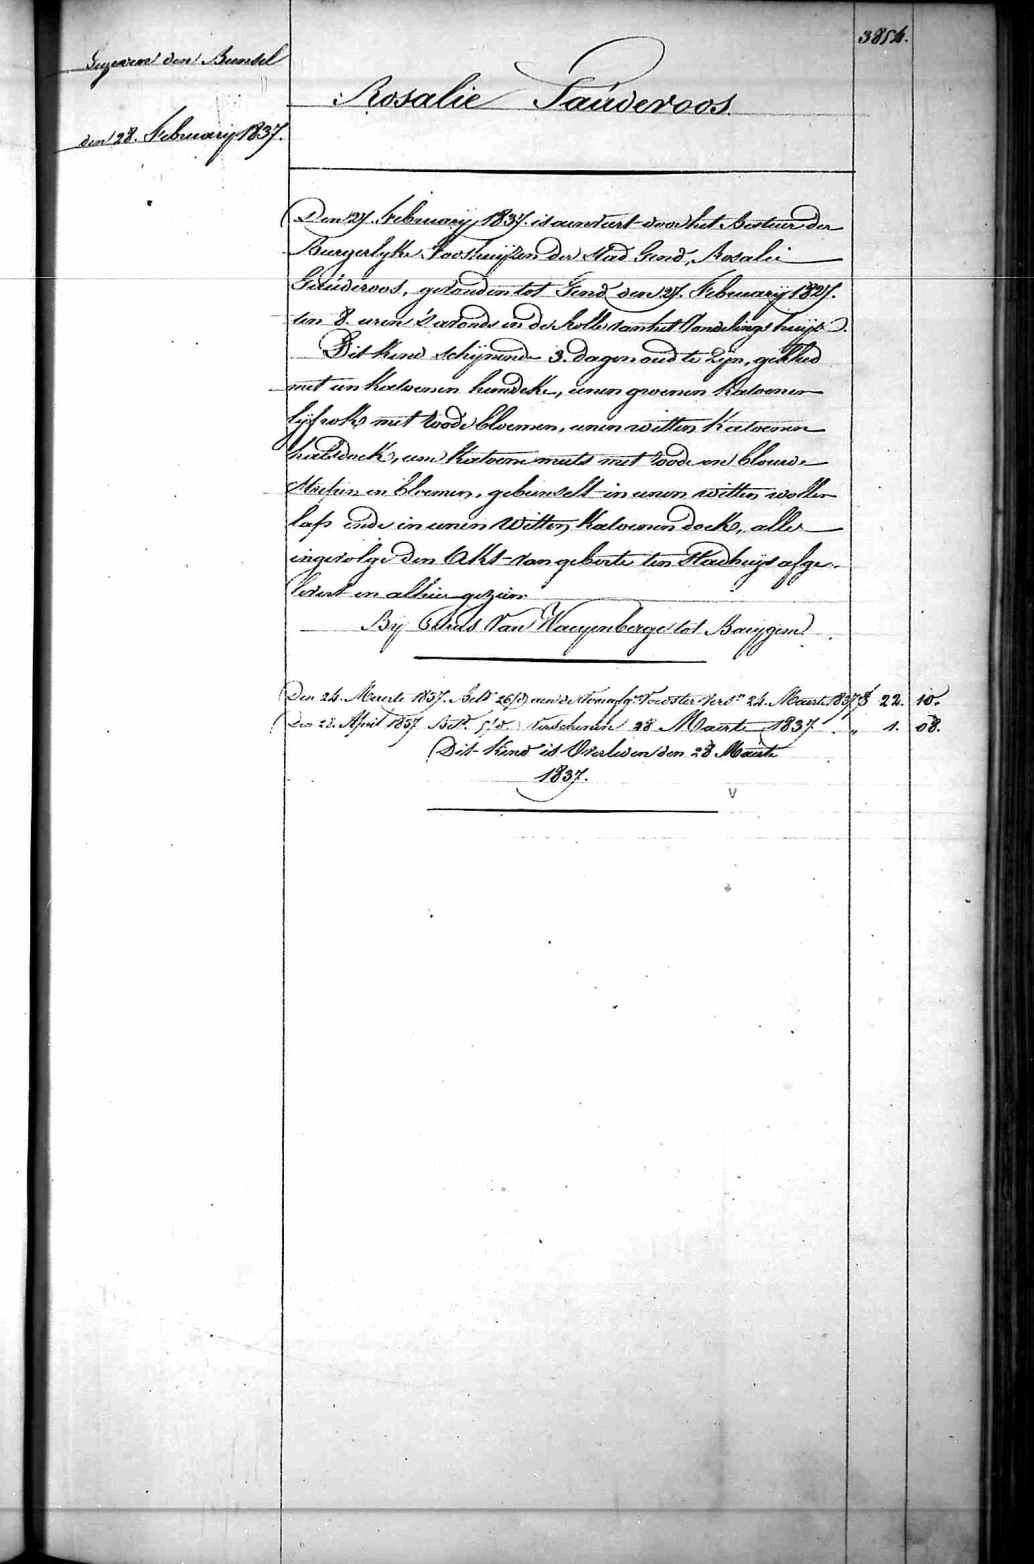 3854.
Gegeven den Bunsel
den 28. February 1837.
Rosalie Gaúderoos.
Den 27. February 1837. is aenveert door het Bestuer der
Burgerlyke Godshuyzen der stad Gend, Rosalie
Gaúderoos, gevonden tot Gend den 27. February 1837.
ten 8. uren 's avonds in de Rolle van het Vondelings huys.
Dit kind schynende 3. dagen oud te zyn, gekleed
met een katoenen hemdeke, eenen groenen katoenen
lyfrok met roode bloemen, eenen witten katoenen
halsdoek, eene katoene muts met roode en blouwe
streepen en bloemen, gebunselt in eenen witten wollen
lap ende in eenen witten katoenen doek, alles
ingevolge den Akt van geboorte ten Stadhuyse afge-
levert en alhier gezien
By Van Waeyenberge tot Baeygem.
Den 24. Maerte 1837. Bet. aen de Voedster 24. Maerte 1837 22. 10.
Den 22. April 1837 Bet. verschenen 28 Maerte 1837 " 1. 08.
Dit kind is Overleden den 28 Maerte
1837.